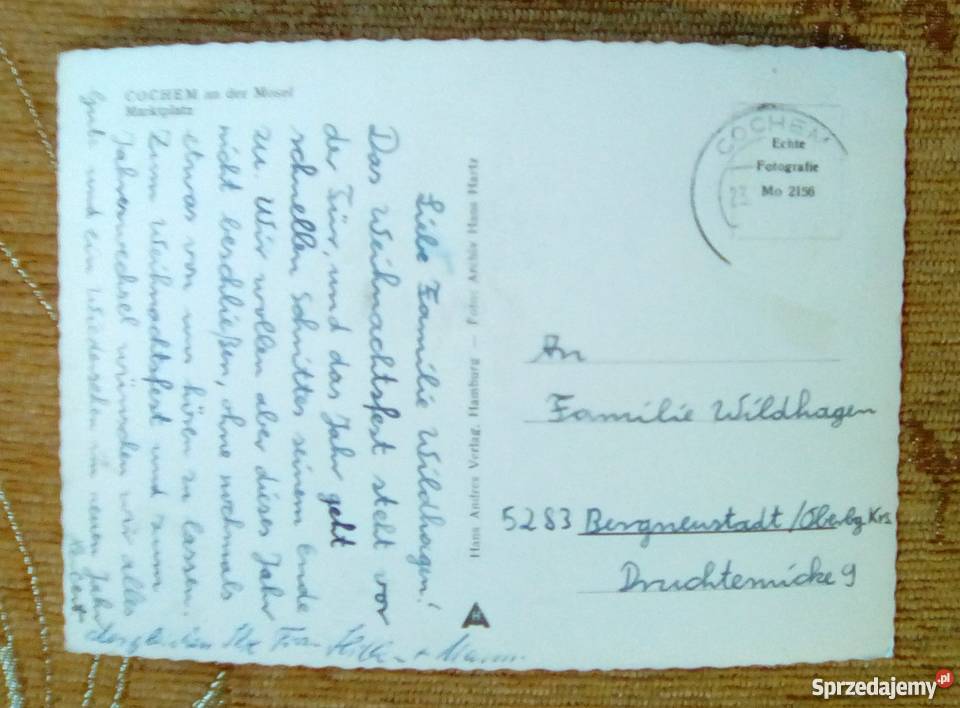 COCHEM an der Mosel
Marktplatz
Liebe Familie Wildhagen!
Das Weihnachtsfest steht vor
der Tür, und das Jahr geht
schnellen Schrittes seinem Ende
zu. Wir wollen aber dieses Jahr
nicht beschließen, ohne nochmals
etwas von uns hören zu lassen.
Zum Weihnachtsfest und zum
Jahreswechsel wünschen wir alles
Gute und ein Wiedersehen im neuen Jahr
Ihre Frau + Mann
Hans Andres Verlag, Hamburg – Foto: Andres + Hans Hartz
COCHEM
23.
Echte
Fotografie
Mo 2156
An
Familie Wildhagen
5283 Bergneustadt/Oberbg. Krs.
Druchtemicke 9
Sprzedajemy.pl